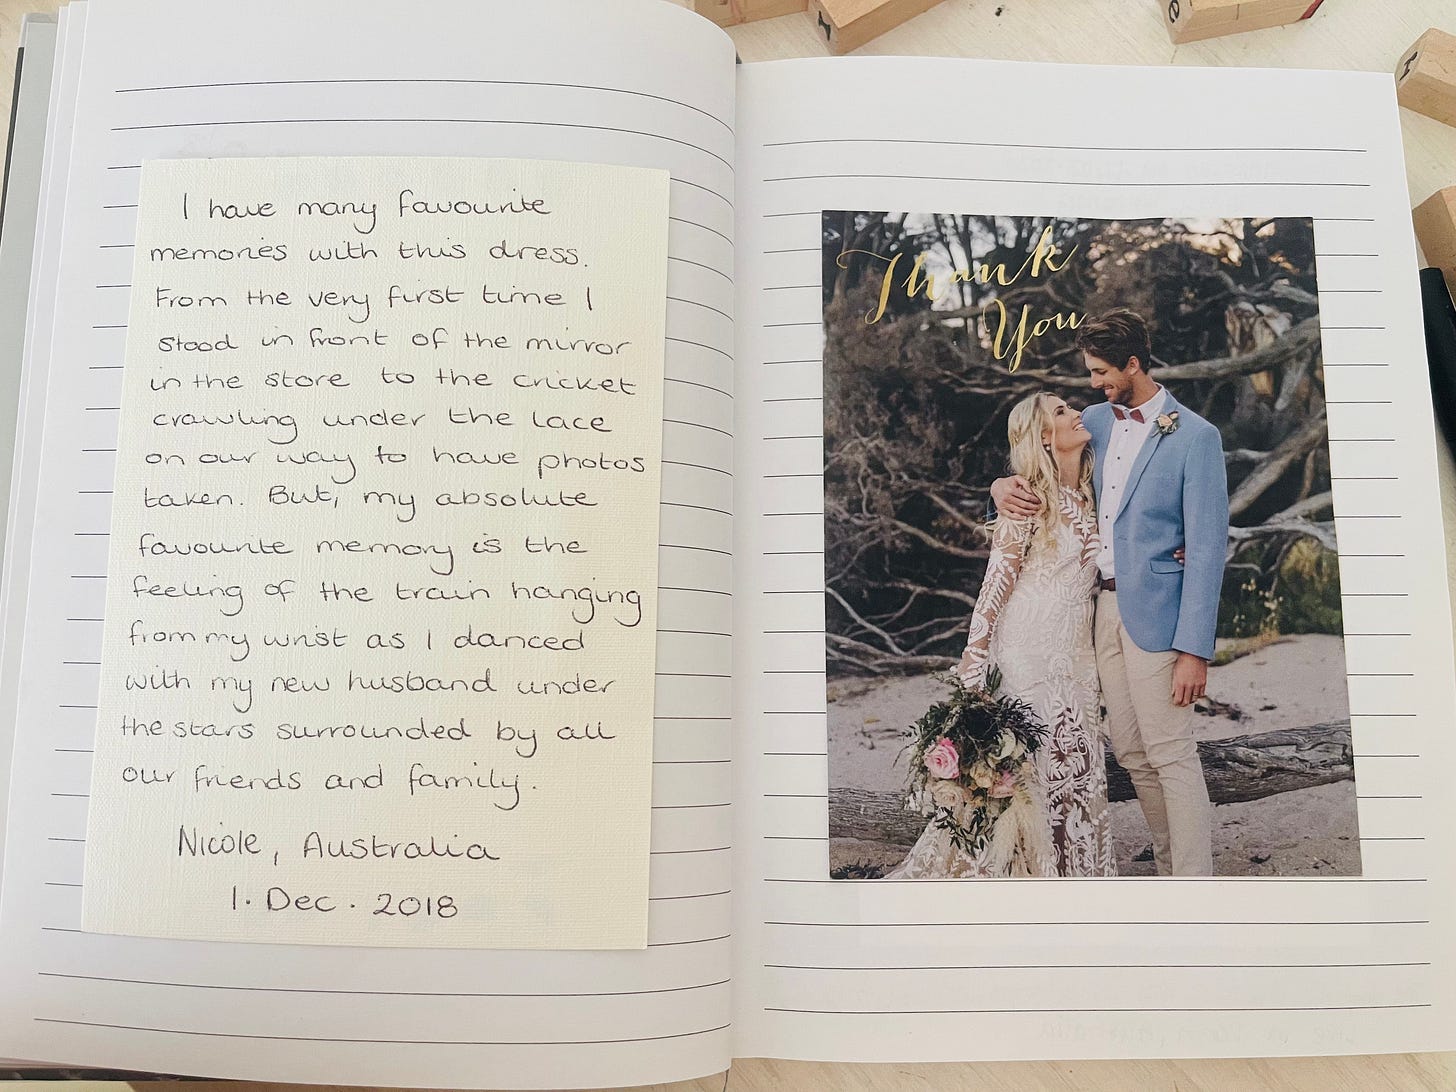 I have many favourite
memories with this dress.
From the very first time I
stood in front of the mirror
in the store to the cricket
crawling under the lace
on our way to have photos
taken. But, my absolute
favourite memory is the
feeling of the train hanging
from my wrist as I danced
with my new husband under
the stars surrounded by all
our friends and family.
Nicole, Australia
1. Dec. 2018
Thank
You